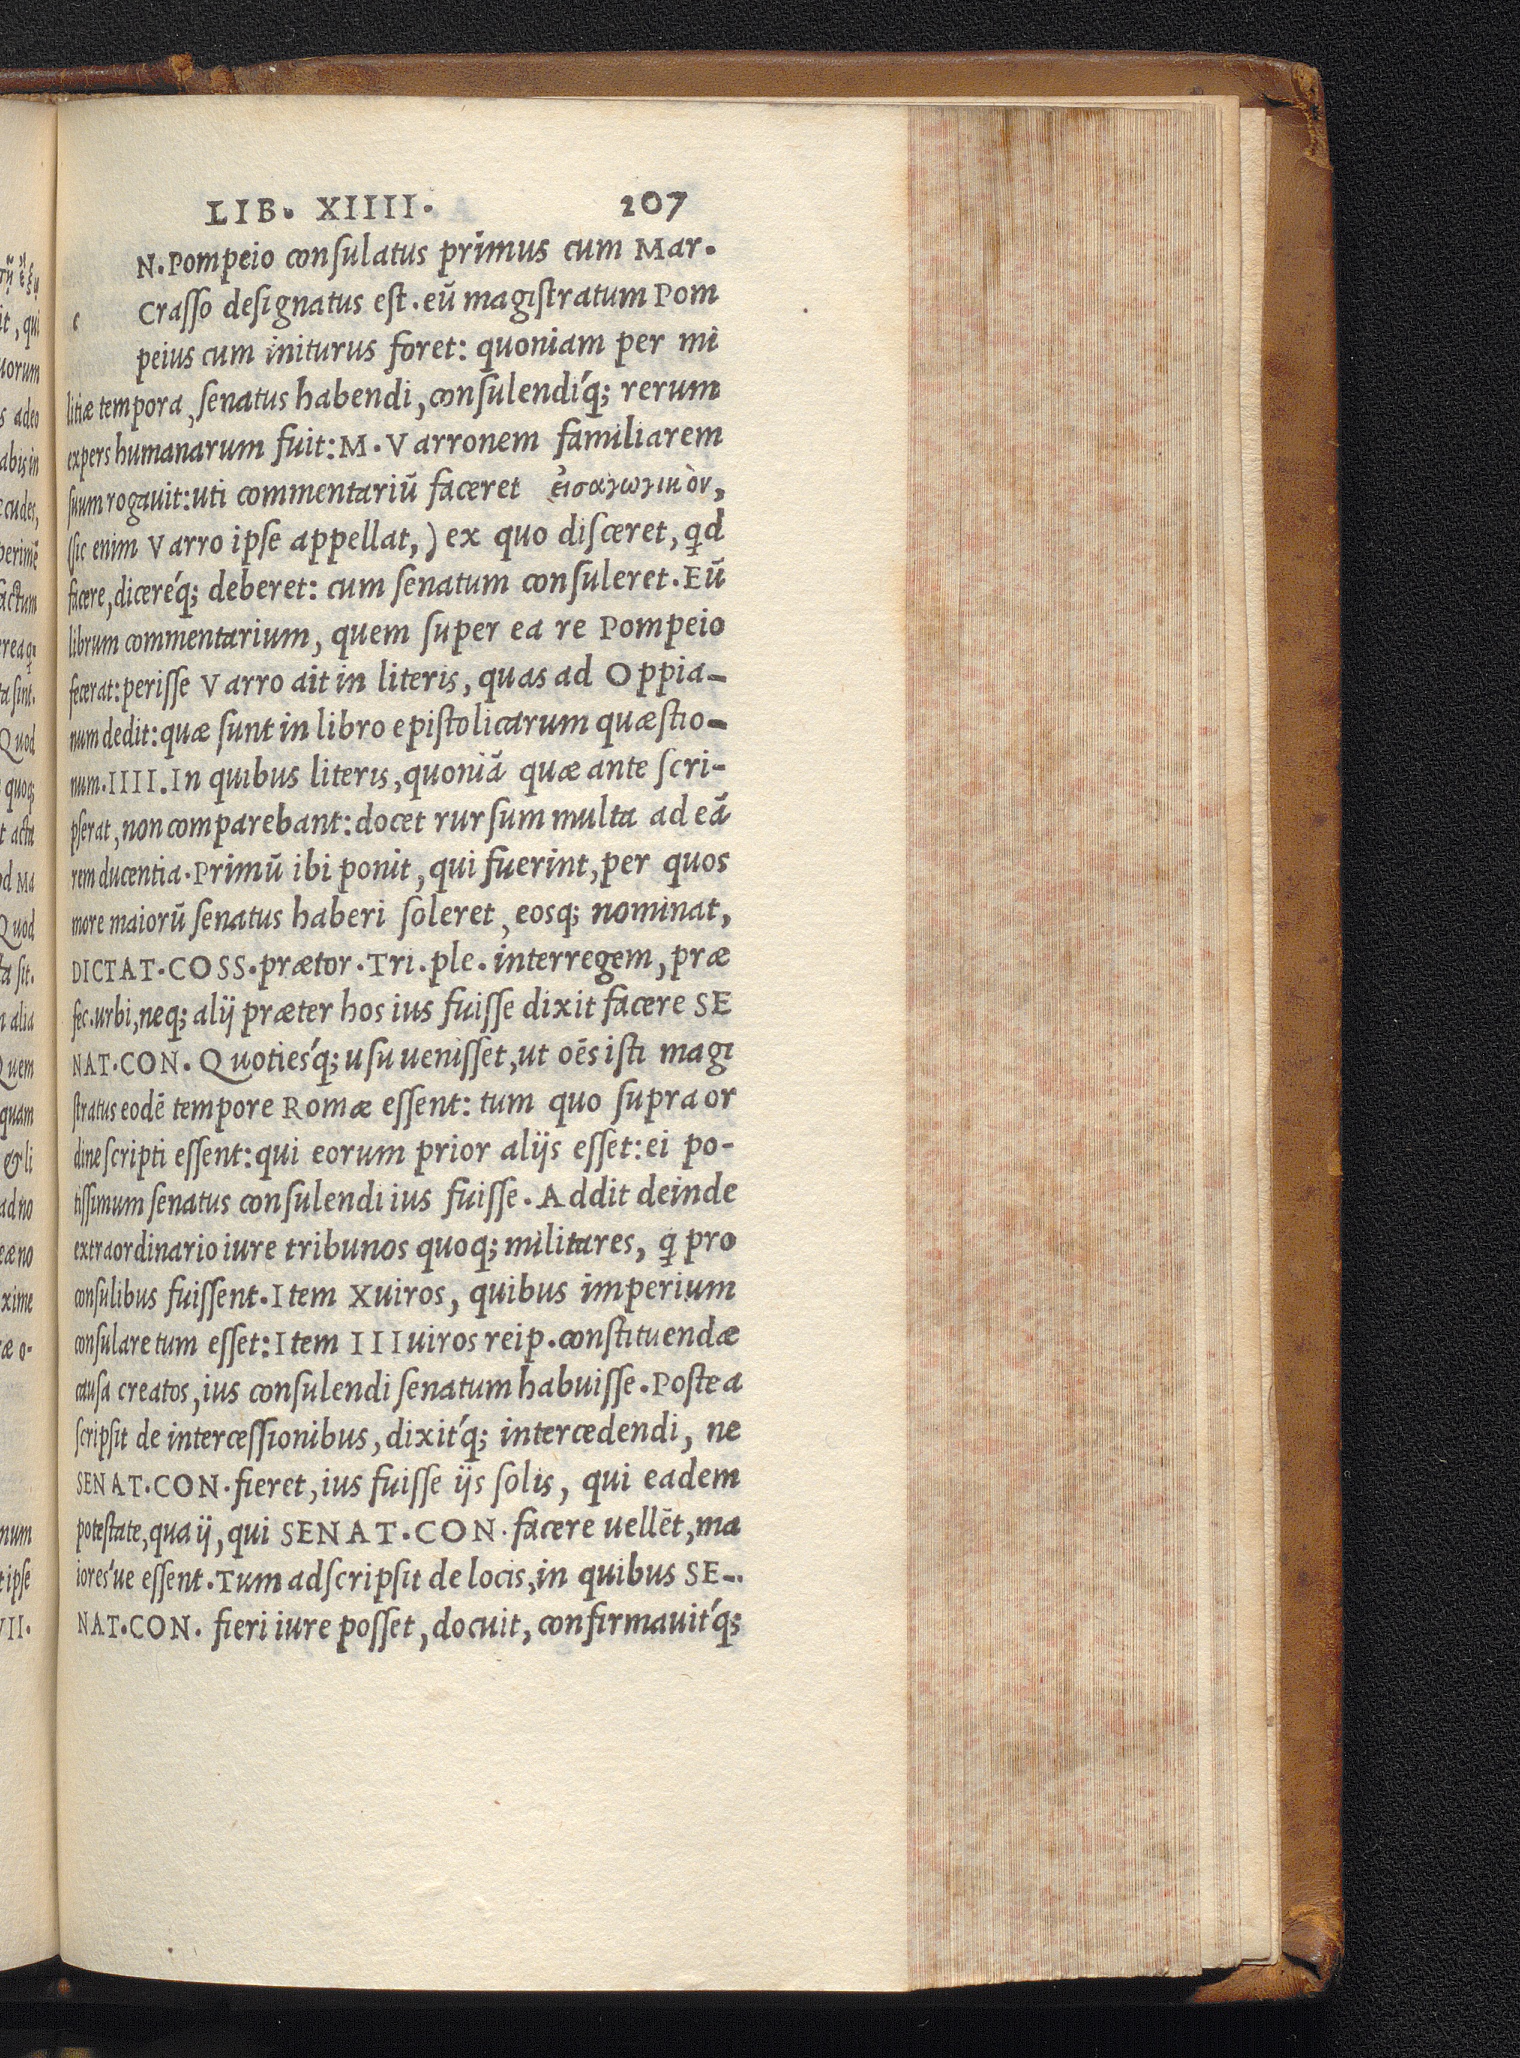 LIB. XIIII. 207
N. Pompeio conſulatus primus cum Mar.
c Craſſo deſignatus eſt. eū magiſtratum Pom
peius cum initurus foret: quoniam per mi
litiæ tempora, ſenatus habendi, conſulendiq́; rerum
expers humanarum fuit: M. Varronem familiarem
ſuum rogauit: uti commentariū faceret εἰσαγωγικὸν,
(ſic enim Varro ipſe appellat,) ex quo diſceret, qd
facere, dicereq́; deberet: cum ſenatum conſuleret. Eū
librum commentarium, quem ſuper ea re Pompeio
fecerat: periſſe Varro ait in literis, quas ad Oppia-
num dedit: quæ ſunt in libro epiſtolicarum quæſtio-
num. IIII. In quibus literis, quoniā quæ ante ſcri-
pſerat, non comparebant: docet rurſum multa ad eā
rem ducentia. Primū ibi ponit, qui fuerint, per quos
more maiorū ſenatus haberi ſoleret, eosq; nominat,
DICTAT. COSS. prætor. Tri. ple. interregem, præ
fec. urbi, neq; alij præter hos ius fuiſſe dixit facere SE
NAT. CON. Quotieſq́; uſu ueniſſet, ut oēs iſti magi
ſtratus eodē tempore Romæ eſſent: tum quo ſupra or
dine ſcripti eſſent: qui eorum prior alijs eſſet: ei po-
tiſſimum ſenatus conſulendi ius fuiſſe. Addit deinde
extraordinario iure tribunos quoq; militares, q pro
conſulibus fuiſſent. Item Xuiros, quibus imperium
conſulare tum eſſet: Item IIIuiros reip. conſtituendæ
cauſa creatos, ius conſulendi ſenatum habuiſſe. Poſtea
ſcripſit de interceſſionibus, dixitq́; intercedendi, ne
SENAT. CON. fieret, ius fuiſſe ijs ſolis, qui eadem
poteſtate, qua ij, qui SENAT. CON. facere uellēt, ma
iores'ue eſſent. Tum adſcripſit de locis, in quibus SE-
NAT. CON. fieri iure poſſet, docuit, confirmauitq́;